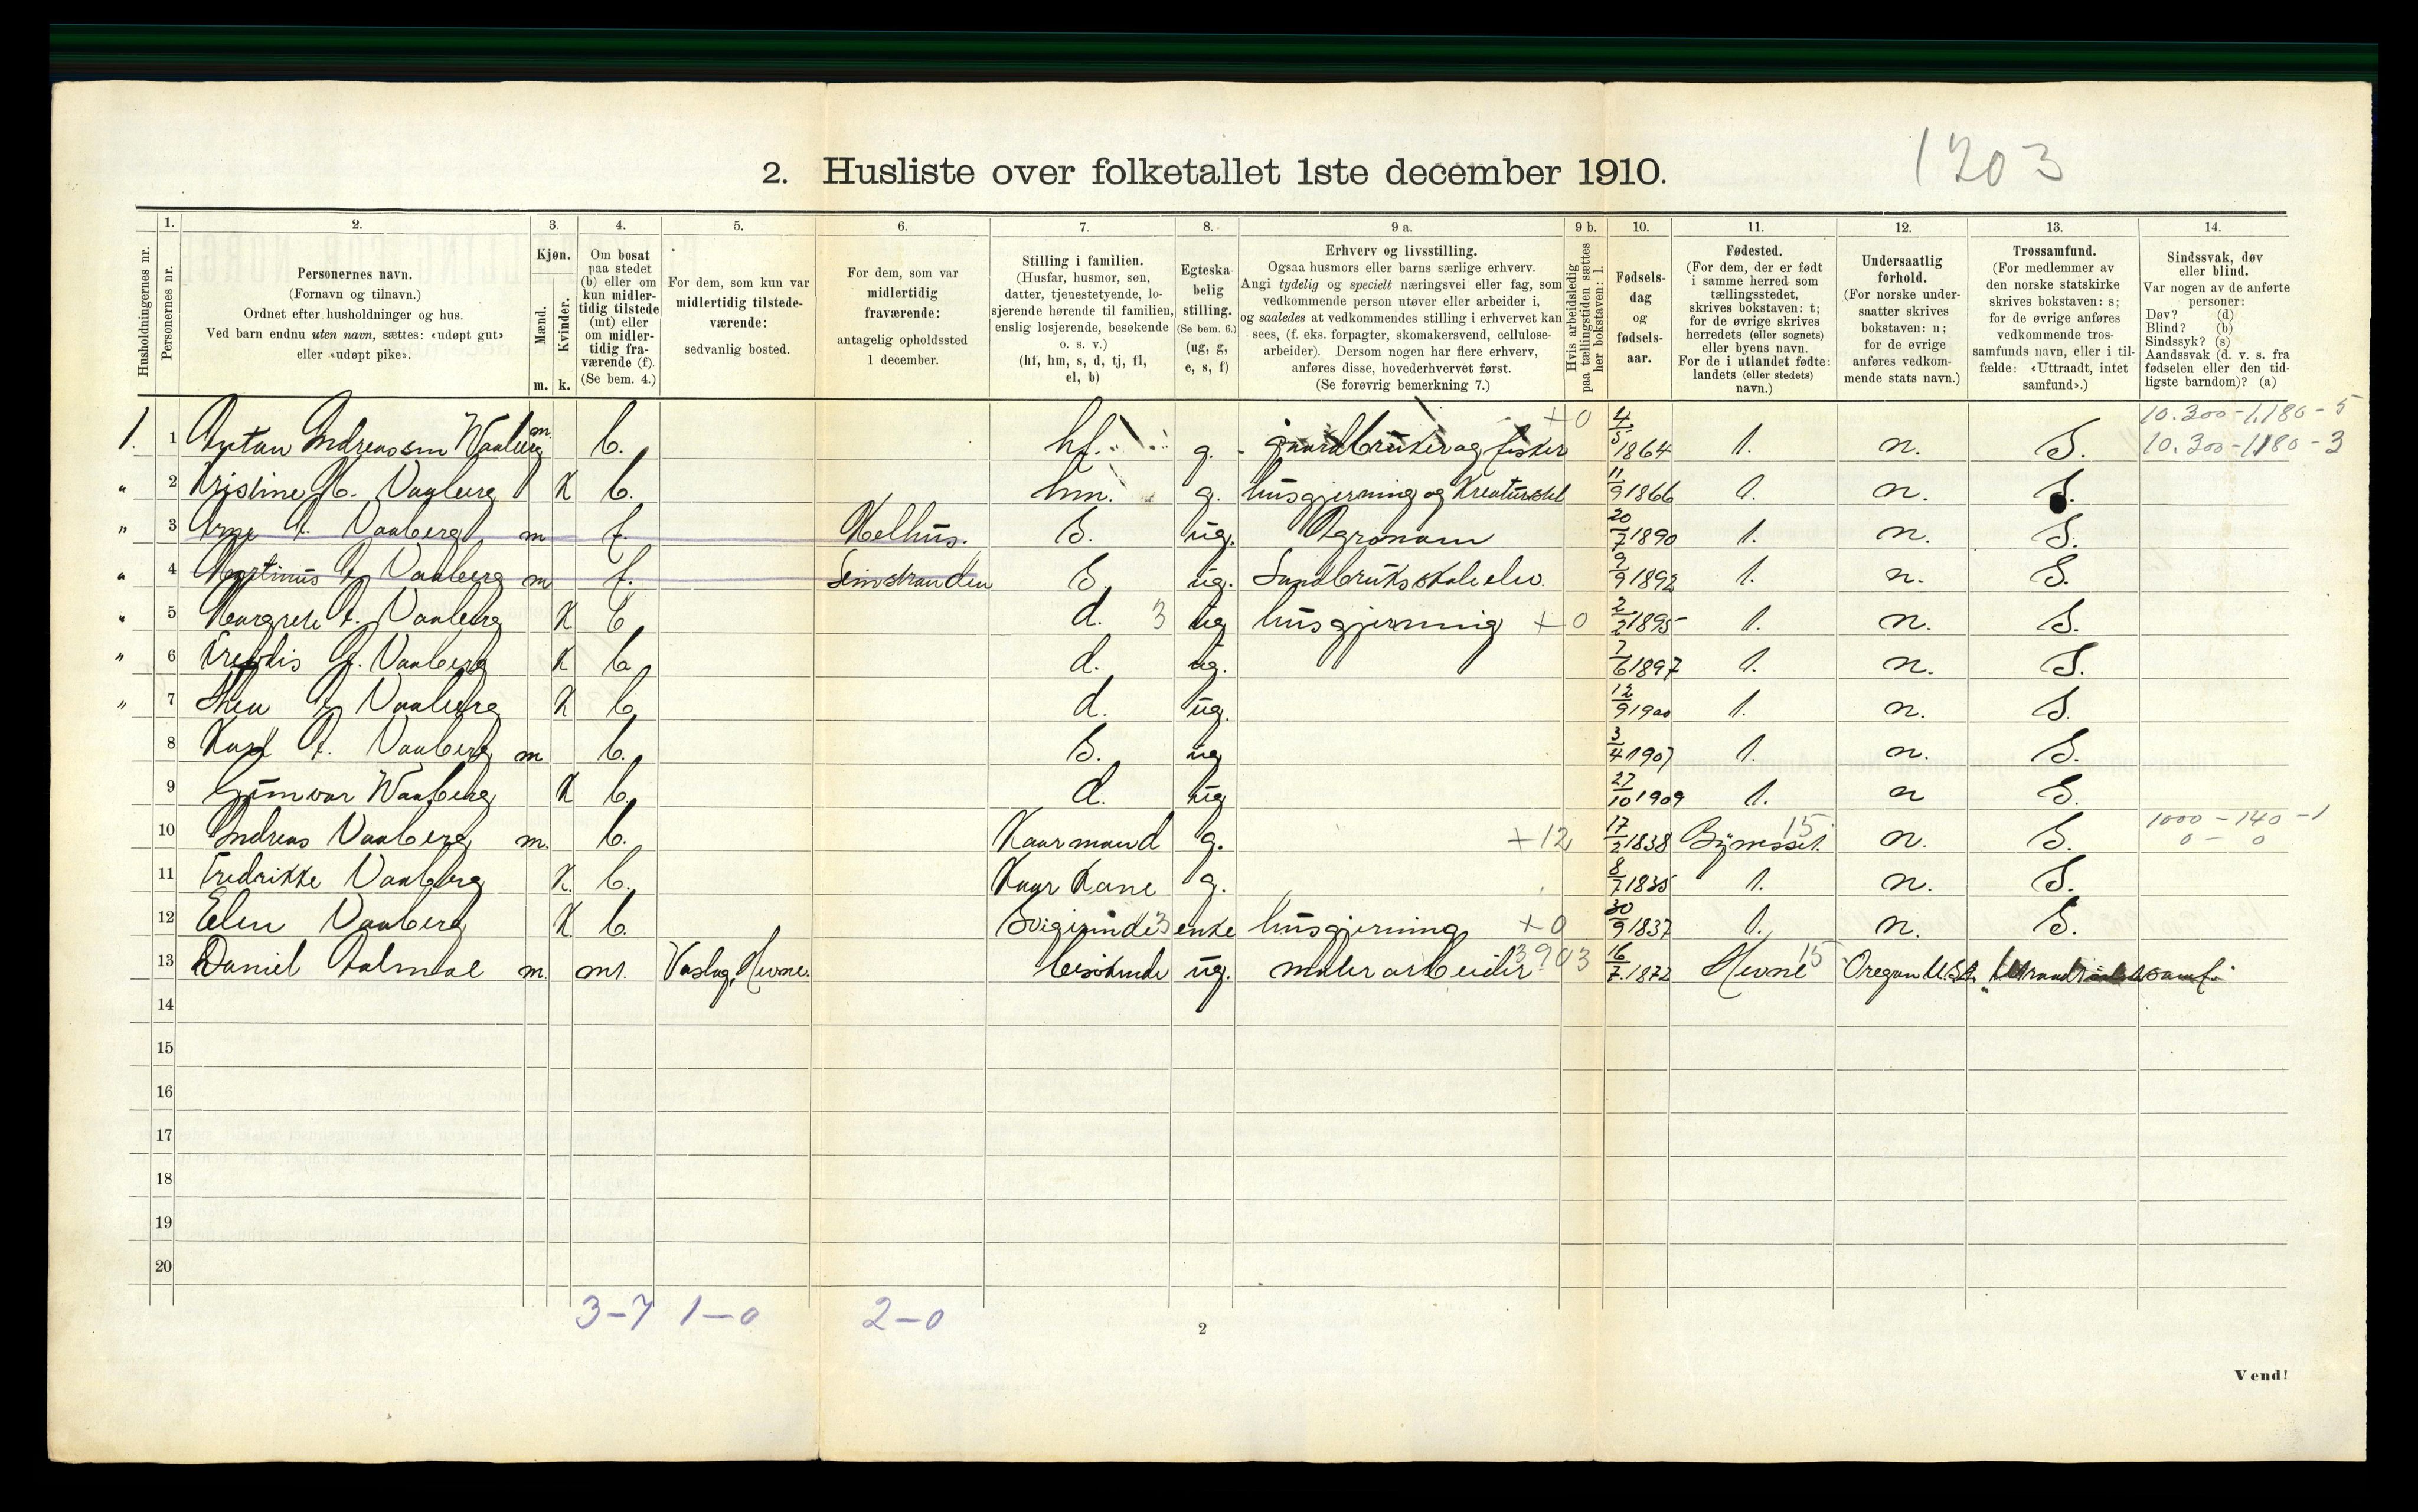 1203
2. Husliste over folketallet 1ste december 1910.
Husholdningernes nr.
1. Personernes nr.
2. Personernes navn.
(Fornavn og tilnavn.)
Ordnet efter husholdninger og hus.
Ved barn endnu uten navn, sættes: «udøpt gut»
eller «udøpt pike».
3. Kjøn.
Mænd. m.
Kvinder. k.
4. Om bosat
paa stedet
(b) eller om
kun midler-
tidig tilstede
(mt) eller
om midler-
tidig fra-
værende (f).
(Se bem. 4.)
5. For dem, som kun var
midlertidig tilstede-
værende:
sedvanlig bosted.
6. For dem, som var
midlertidig
fraværende:
antagelig opholdssted
1 december.
7. Stilling i familien.
(Husfar, husmor, søn,
datter, tjenestetyende, lo-
sjerende hørende til familien,
enslig losjerende, besøkende
o. s. v.)
(hf, hm, s, d, tj, fl,
el, b)
8. Egteska-
belig
stilling.
(Se bem. 6.)
(ug, g,
e, s, f)
9 a. Erhverv og livsstilling.
Ogsaa husmors eller barns særlige erhverv.
Angi tydelig og specielt næringsvei eller fag, som
vedkommende person utøver eller arbeider i,
og saaledes at vedkommendes stilling i erhvervet kan
sees, (f. eks. forpagter, skomakersvend, cellulose-
arbeider). Dersom nogen har flere erhverv,
anføres disse, hovederhvervet først.
(Se forøvrig bemerkning 7.)
9 b. Hvis arbeidsledig
paa tællingstiden sættes
her bokstaven: l.
10. Fødsels-
dag
og
fødsels-
aar.
11. Fødested.
(For dem, der er født
i samme herred som
tællingsstedet,
skrives bokstaven: t;
for de øvrige skrives
herredets (eller sognets)
eller byens navn.
For de i utlandet fødte:
landets (eller stedets)
navn.)
12. Undersaatlig
forhold.
(For norske under-
saatter skrives
bokstaven: n;
for de øvrige
anføres vedkom-
mende stats navn.)
13. Trossamfund.
(For medlemmer av
den norske statskirke
skrives bokstaven: s;
for de øvrige anføres
vedkommende tros-
samfunds navn, eller i til-
fælde: «Uttraadt, intet
samfund».)
14. Sindssvak, døv
eller blind.
Var nogen av de anførte
personer:
Døv? (d)
Blind? (b)
Sindssyk? (s)
Aandssvak (d. v. s. fra
fødselen eller den tid-
ligste barndom)? (a)
10.300-1.180-5
1. 1 Anton Andreassen Waaberg m. b. hf. g. gaardbruker og fisker +0 4/5 1864 t. n. S. 10.300-1180-3
" 2 Kristine M. Vaaberg K b. hm. g. husgjerning og Kreaturstel 11/9 1866 t. n. S.
" 3 Arne A. Vaaberg m f. Melhus. S. ug. Agronom 20/7 1890 t. n. S.
" 4 Martinus A. Vaaberg m f. Leinstranden S. ug. Landbruksskoleelev. 9/9 1892 t. n. S.
" 5 Margrete A. Vaaberg K b. d. 3 ug husgjerning +0 2/2 1895 t. n. S.
" 6 A. Vaaberg K b. d. ug. 7/6 1897 t. n. S.
" 7 Thea A. Vaaberg K b. d. ug. 12/9 1900 t. n. S.
8 Karl A. Vaaberg m b. S. ug 3/4 1907 t. n. S.
9 Gunvor Waaberg K b. d. ug 27/10 1909 t. n S.
10 Andreas Vaaberg m. b. Kaarmand g. +12 17/2 1838 15 n. S. 1000-140-1
0-0
11 Fredrikke Vaaberg K. b. Kaar Kone g. 8/7 1835 t. n. S.
12 Elen Vaaberg K b. 3 enke husgjerning +0 30/9 1837 t. n. S.
13 Daniel m. mt. Hevne. besökende ug. malerarbeider 3903 16/7 1872 Hevne 15 Oregon U.S.A.
14
15
16
17
18
19
20
3-7 1-0 2-0
2
Vend!